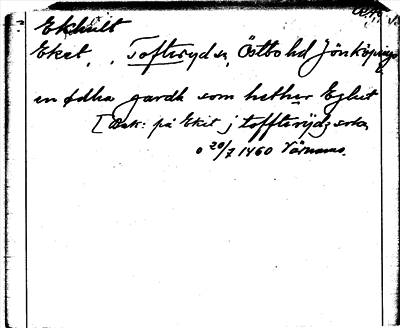 Ekhult
Eket, Tofteryds, Östbo hd Jönköpings
en ødha gardh som hether Eghut
[Bak: på Eket j toffterijdz sokn
o 20/7 1460 Värnamo.